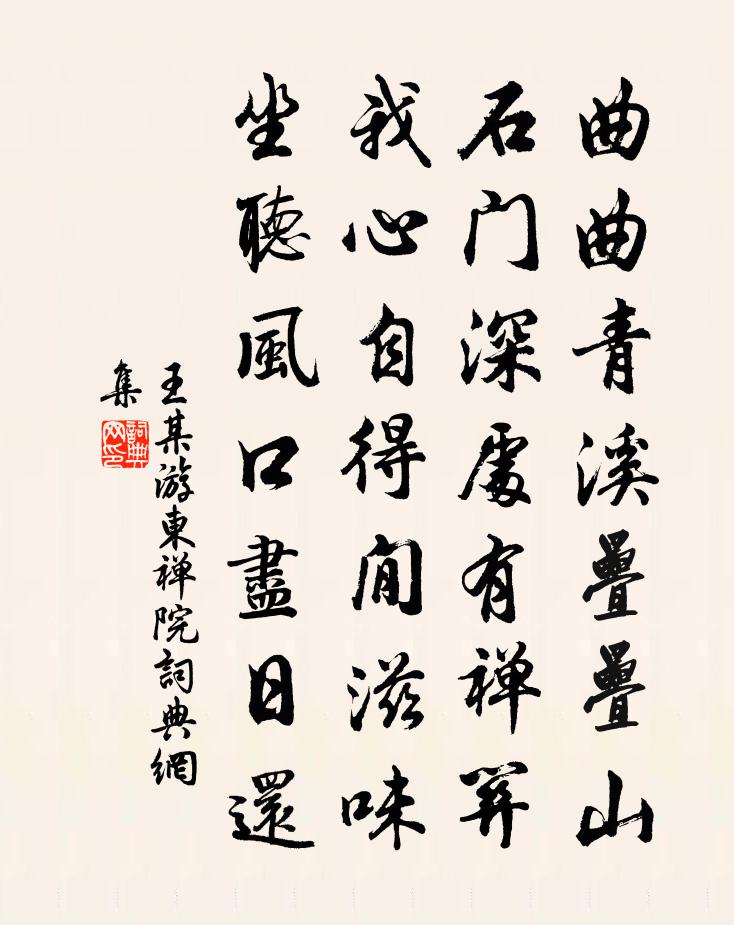 曲曲青溪疊疊山
石门深處有禅關
我心自得閒滋味
坐聽風口盡日還
王某游東禅院詞典網
集
詞典网印